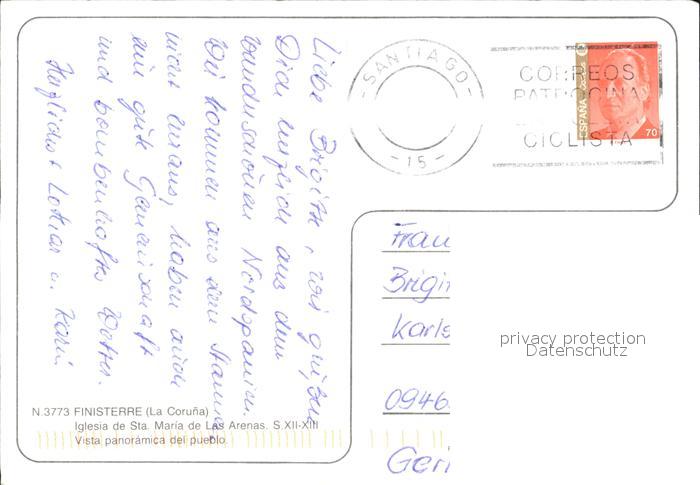 Liebe Brigitte, wir grüßen
Dich herzlich aus dem
wunderschönen Nordspanien.
Wir kommen aus dem Staunen
nicht heraus, haben auch
ein gute Gemeinschaft
und bombenhaftes Wetter.
Herzlichst Lothar u. Karin
SANTIAGO
-15-
CORREOS
PATROCINA
CICLISTA
ESPAÑA
70
Frau
Brigit
Karls
0946
Ger
privacy protection
Datenschutz
N.3773 FINISTERRE (La Coruña)
Iglesia de Sta. María de Las Arenas. S.XII-XIII
Vista panorámica del pueblo.